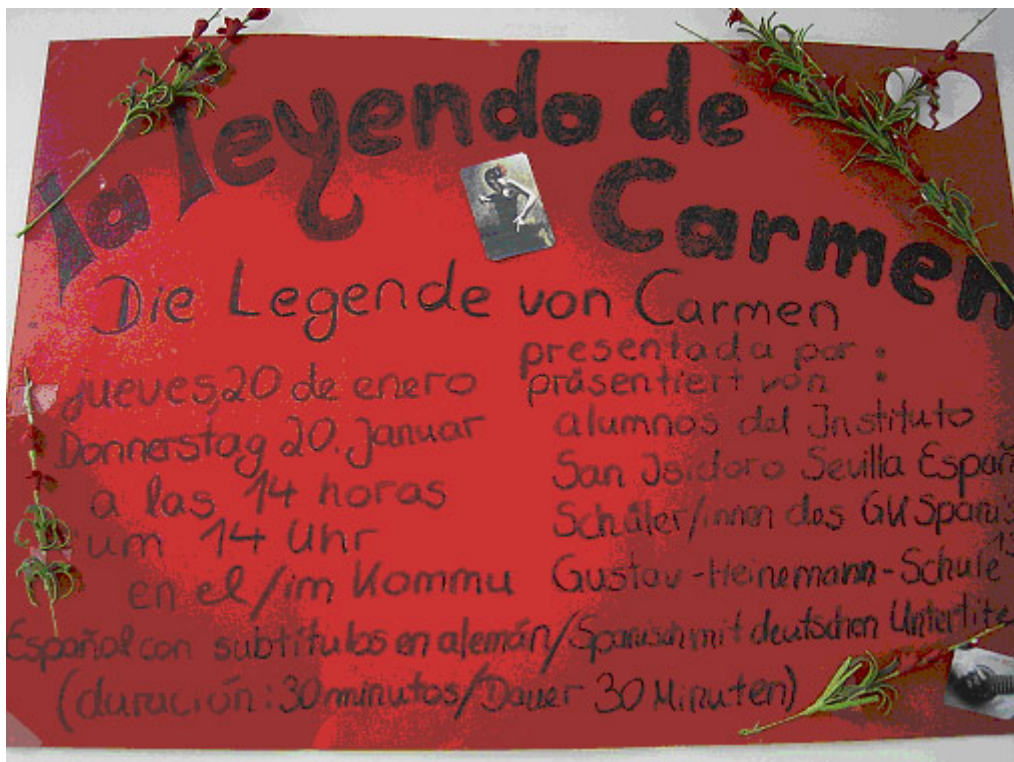 la leyenda de
Carmen
Die Legende von Carmen
jueves, 20 de enero
Donnerstag 20. Januar
a las 14 horas
um 14 Uhr
en el/im Kommu
presentada por :
präsentiert von :
alumnos del Instituto
San Isidoro Sevilla Españ
Schüler/innen des GK Spanis
Gustav-Heinemann-Schule
Español con subtítulos en alemán/Spanisch mit deutschen Untertite
(duración: 30 minutos/Dauer 30 Minuten)